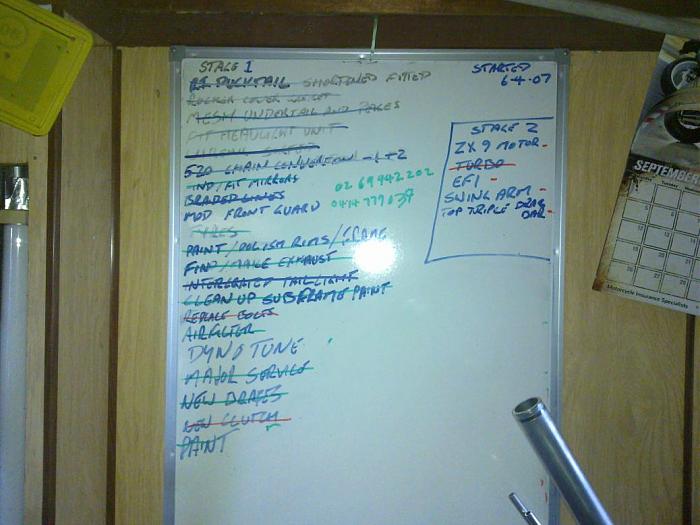 STAGE 1
DUCKTAIL SHORTENED FITTED
ROCKER COVER
MESH UNDERTAIL AND
FIT HEADLIGHT UNIT
520 CHAIN CONVERTION -1 +2
IND/FIT MIRRORS
BRADED LINES
MOD FRONT GUARD
02 69942202
TYRES
PAINT/POLISH RIMS/FRAME
FIND/MAKE EXHAUST
INTERGRATED TAILLIGHT
CLEAN UP SUBFRAME PAINT
REPLACE BOLTS
AIRFILTER
DYNO TUNE
MAJOR SERVICE
NEW BRAKES
NEW CLUTCH
PAINT
STARTED
6-4-07
STAGE 2
ZX9 MOTOR-
TURBO
EFI -
SWING ARM -
TOP TRIPLE DRAG
BAR-
SEPTEMBER
Motorcycle Insurance Specialists